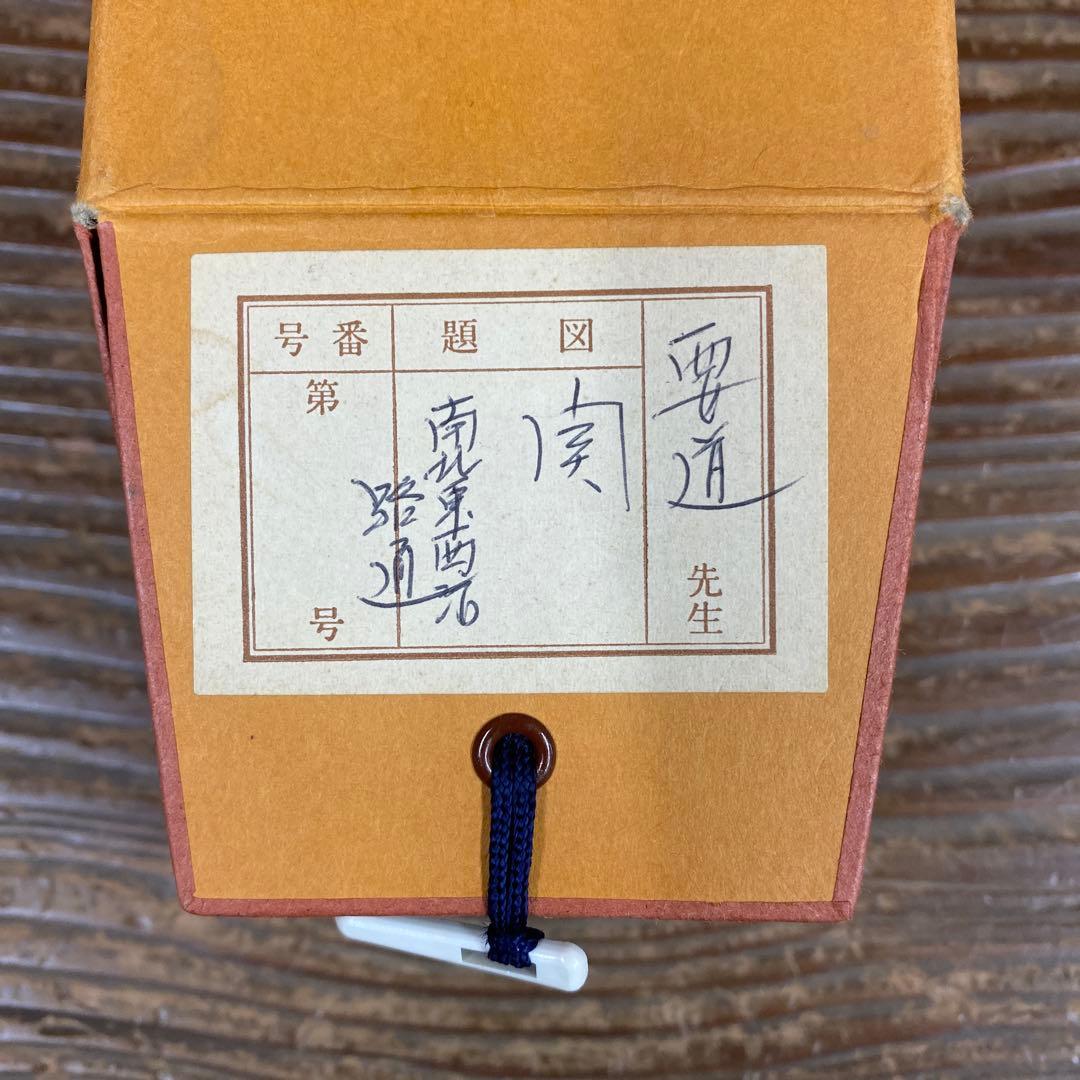 要道
先生
図題
関
南北東西活
路通
番号
第
号